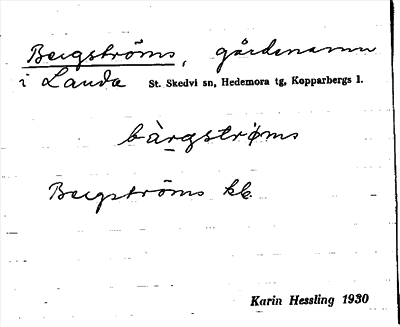 Bergströms, gårdsnamn
i Landa St. Skedvi sn, Hedemora tg, Kopparbergs l.
bàrgstrøms
Bergströms kb.
Karin Hessling 1930